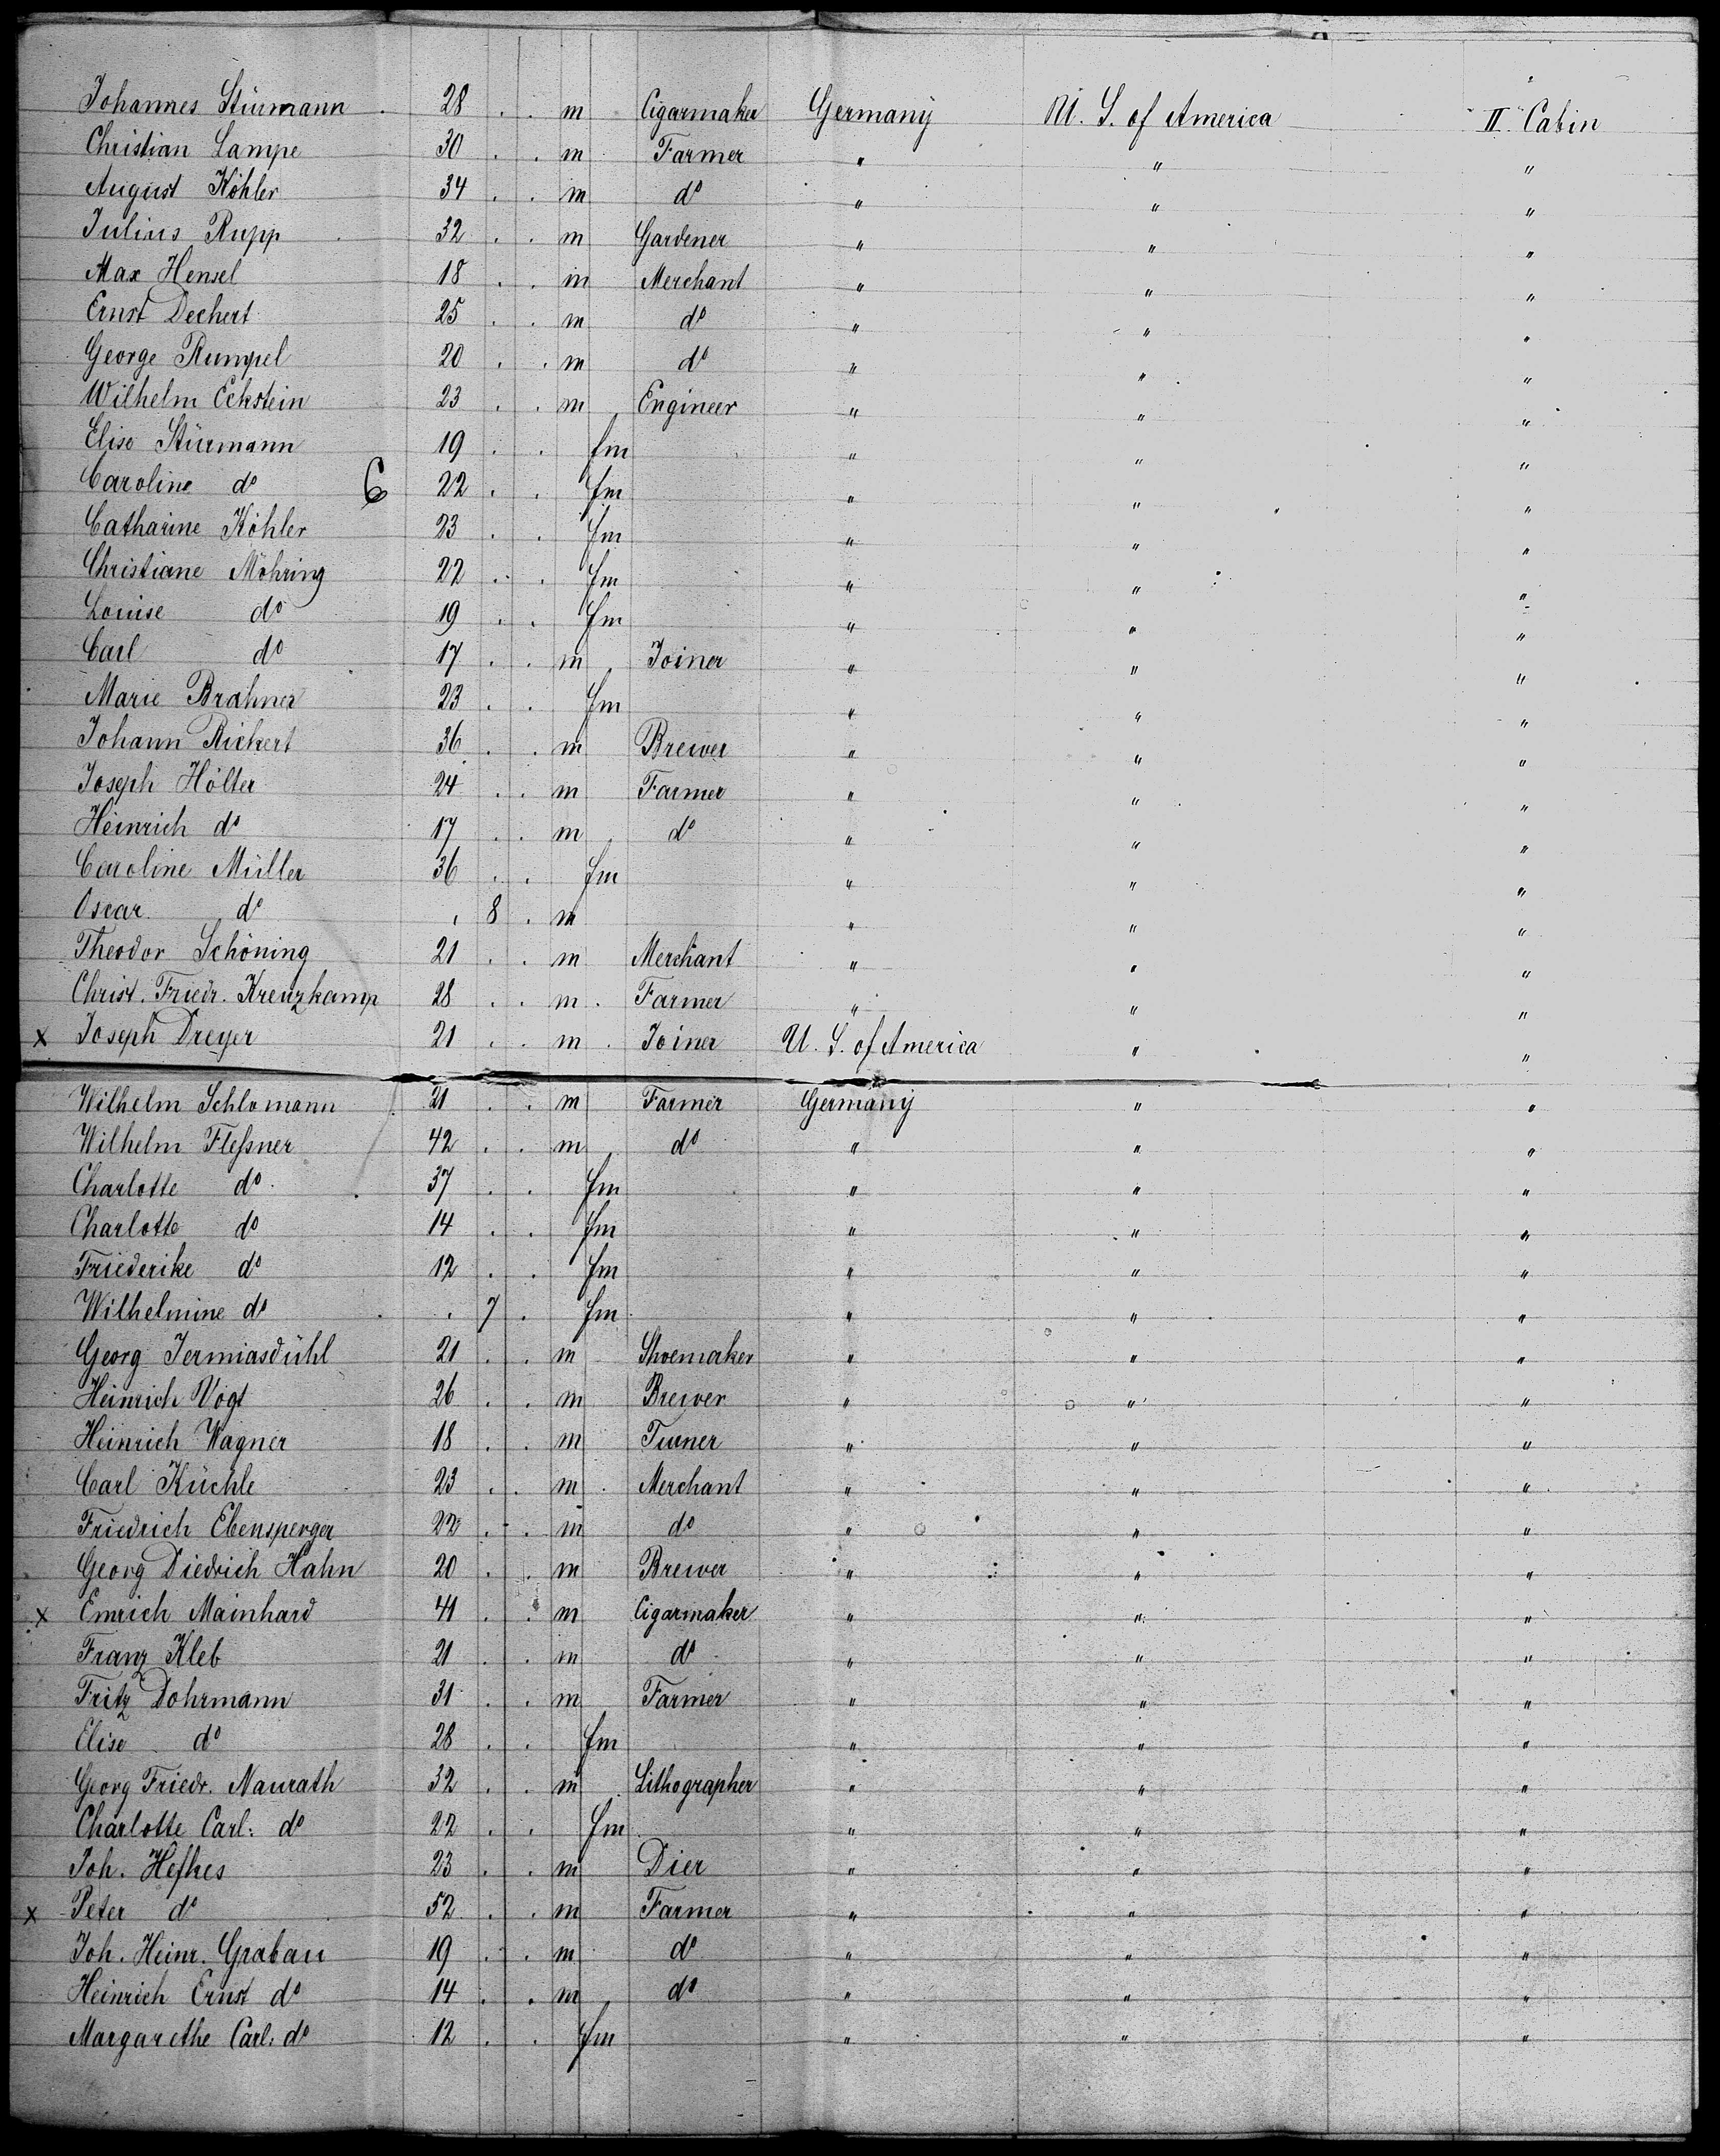 Johannes Stürmann 28 . . m Cigarmaker Germany U. S. of America II Cabin
Christian Lampe 30 . . m Farmer " " "
August Köhler 34 . . m do " " "
Julius Rupp 32 . . m Gardener " " "
Max Hensel 18 . . m Merchant " " "
Ernst Dechert 25 . . m do " " "
George Rumpel 20 . . m do " " "
Wilhelm Eckstein 23 . . m Engineer " " "
Elise Stürmann 19 . . fm " " "
Caroline do 6 22 . . fm " " "
Catharine Köhler 23 . . fm " " "
Christiane Möhring 22 . . fm " " "
Louise do 19 . . fm " " "
Carl do 17 . . m Joiner " " "
Marie Brahner 23 . . fm " " "
Johann Rickert 36 . . m Brewer " " "
Joseph Hölter 24 . . m Farmer " " "
Heinrich do 17 . . m do " " "
Caroline Müller 36 . . fm " " "
Oscar do . 8 . m " " "
Theodor Schöning 21 . . m Merchant " " "
Christ. Friedr. Kreuzkamp 28 . . m Farmer " " "
x Joseph Dreyer 21 . . m Joiner U. S. of America " "
Wilhelm Schlomann 21 . . m Farmer Germany " "
Wilhelm Fleßner 42 . . m do " " "
Charlotte do 37 . . fm " " "
Charlotte do 14 . . fm " " "
Friederike do 12 . . fm " " "
Wilhelmine do . 7 . fm " " "
Georg Jermiasdühl 21 . . m Shoemaker " " "
Heinrich Vogt 26 . . m Brewer " " "
Heinrich Wagner 18 . . m Turner " " "
Carl Küchle 23 . . m Merchant " " "
Friedrich Ebensperger 22 . . m do " " "
Georg Diedrich Hahn 20 . . m Brewer " " "
x Emrich Mainhard 41 . . m Cigarmaker " " "
Franz Kleb 21 . . m do " " "
Fritz Dohrmann 31 . . m Farmer " " "
Elise do 28 . . fm " " "
Georg Friedr. Naurath 32 . . m Lithographer " " "
Charlotte Carl: do 22 . . fm " " "
Joh. Hefkes 23 . . m Dier " " "
x Peter do 52 . . m Farmer " " "
Joh. Heinr. Grabau 19 . . m do " " "
Heinrich Ernst do 14 . . m do " " "
Margarethe Carl: do 12 . . fm " " "